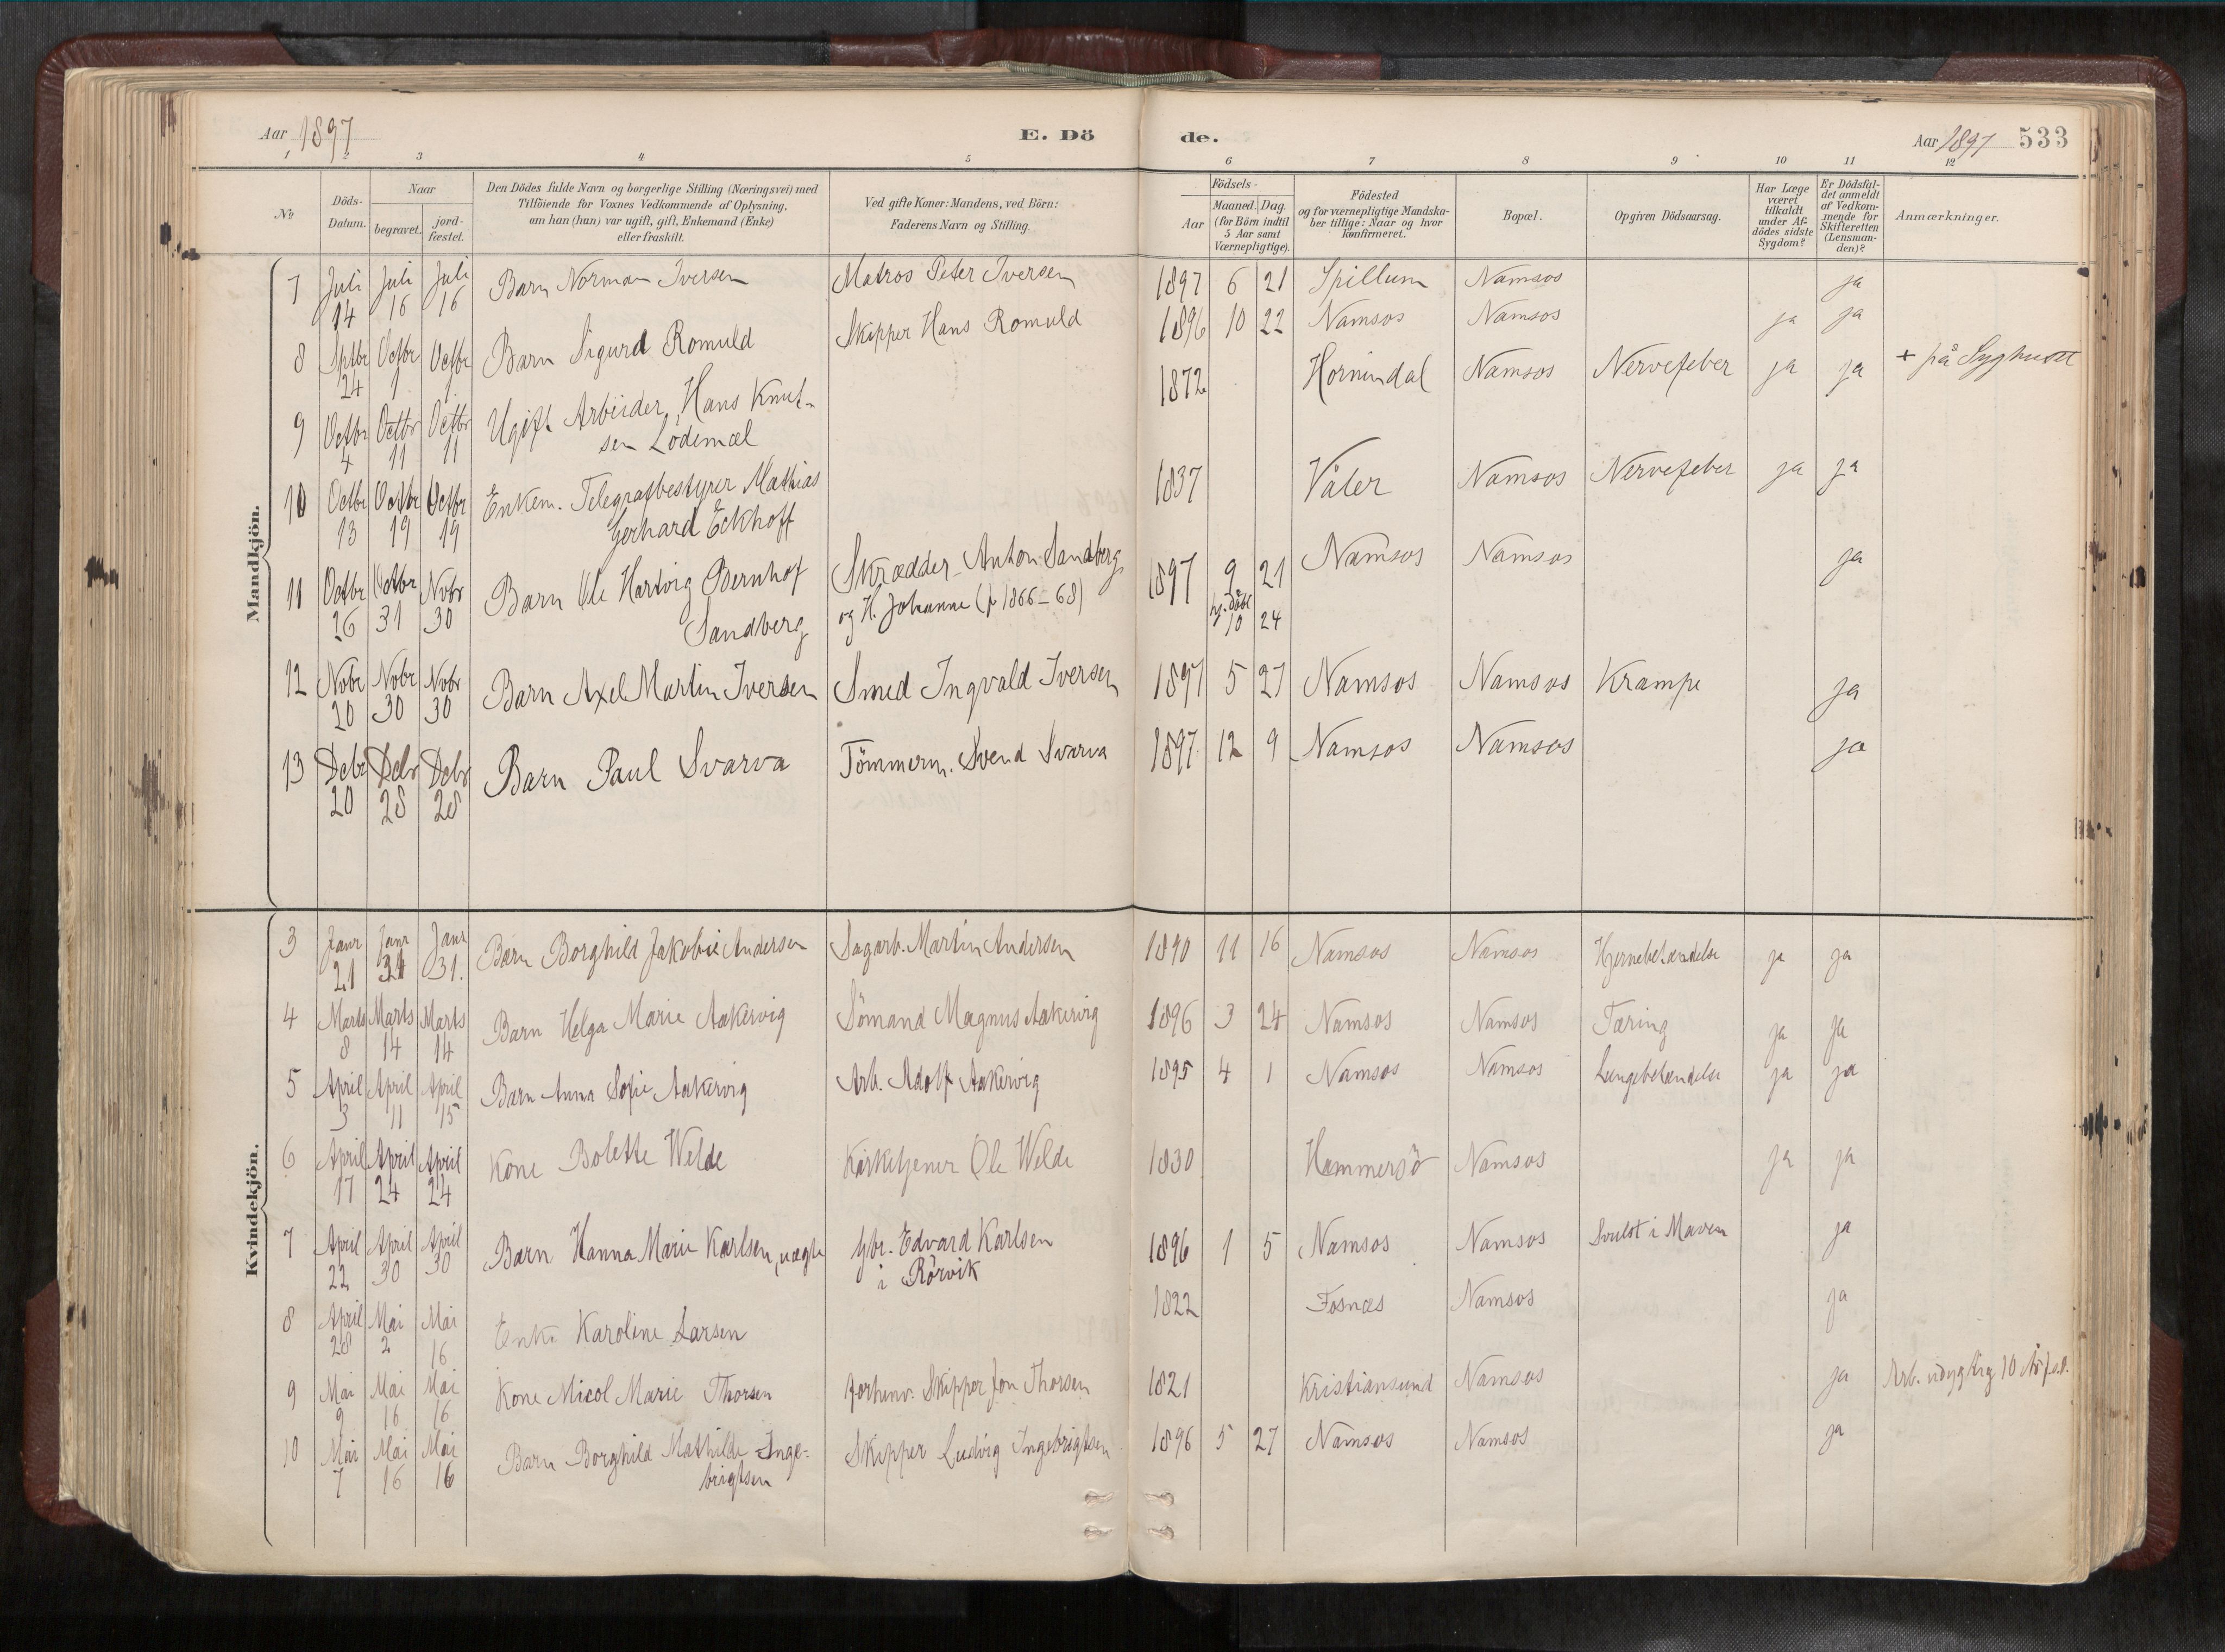 Aar 1897
E. Dö
de.
Aar 1897 533
1 2 3 4 5 6 7 8 9 10 11 12
№
Döds-Datum.
Naar
begravet. jordfæstet.
Den Dödes fulde Navn og borgerlige Stilling (Næringsvei) med
Tilföiende for Voxnes Vedkommende af Oplysning,
om han (hun) var ugift, gift, Enkemand (Enke)
eller fraskilt.
Ved gifte Koner: Mandens, ved Börn:
Faderens Navn og Stilling.
Födsels-
Aar Maaned. Dag.
(for Börn indtil
5 Aar samt
Værnepligtige).
Födested
og for værnepligtige Mandska-
ber tillige: Naar og hvor
konfirmeret.
Bopæl.
Opgiven Dödsaarsag.
Har Læge
været
tilkaldt
under Af-
dödes sidste
Sygdom?
Er Dödsfal-
det anmeldt
af Vedkom-
mende for
Skifteretten
(Lensman-
den)?
Anmærkninger.
Mandkjön.
7 Juli 14 Juli 16 Juli 16 Barn Norman Iversen Matros Peter Iversen 1897 6 21 Spillum Namsos ja
8 Sptbr 24 Octbr 1 Octbr 1 Barn Sigurd Romuld Skipper Hans Romuld 1896 10 22 Namsos Namsos ja ja
9 Octbr 4 Octbr 11 Octbr 11 Ugift Arbeider, Hans Knut-
sen Lödemæl 1872 Hornindal Namsos Nervefeber ja ja + på Syghuset
10 Octbr 13 Octbr 19 Octbr 19 Enkem. Telegrafbestyrer Mathias
Gerhard Eckhoff 1837 Våler Namsos Nervefeber ja ja
11 Octbr 26 Octbr 31 Nobr 30 Barn Ole Hartvig Bernhof
Sandberg Skrædder Anton Sandberg
og H. Johanne (f 1866-68) 1897 9 21 Namsos Namsos ja
hj. döbt
10 24
12 Nobr 20 Nobr 30 Nobr 30 Barn Axel Martin Iversen Smed Ingvald Iversen 1897 5 27 Namsos Namsos Krampe ja
13 Debr 20 Debr 28 Debr 28 Barn Paul Svarva Tömmerm. Svend Svarva 1897 12 9 Namsos Namsos ja
Kvindekjön.
3 Janr 21 Janr 31 Janr 31. Barn Borghild Jakobie Andersen Sagarb. Martin Andersen 1890 11 16 Namsos Namsos Hjernebetændelse ja ja
4 Marts 8 Marts 14 Marts 14 Barn Helga Marie Aakervig Sömand Magnus Aakervig 1896 3 24 Namsos Namsos Tæring ja ja
5 April 3 April 11 April 15 Barn Anna Sofie Aakervig Arb. Adolf Aakervig 1895 4 1 Namsos Namsos Lungebetændelse ja ja
6 April 17 April 24 April 24 Kone Bolette Welde Kirketjener Ole Welde 1830 Hammersö Namsos ja ja
7 April 22 April 30 April 30 Barn Hanna Marie Karlsen, uægte Gbr. Edvard Karlsen
i Rörvik 1896 1 5 Namsos Namsos Svulst i Maven ja
8 April 28 Mai 2 Mai 16 Enke Karoline Larsen 1822 Fosnæs Namsos ja
9 Mai 9 Mai 16 Mai 16 Kone Micol Marie Thorsen forhenv. Skipper Jon Thorsen 1821 Kristiansund Namsos ja Arb. udygtig 10 År
10 Mai 7 Mai 16 Mai 16 Barn Borghild Mathilde Inge-
brigtsen Skipper Ludvig Ingebrigtsen 1896 5 27 Namsos Namsos ja